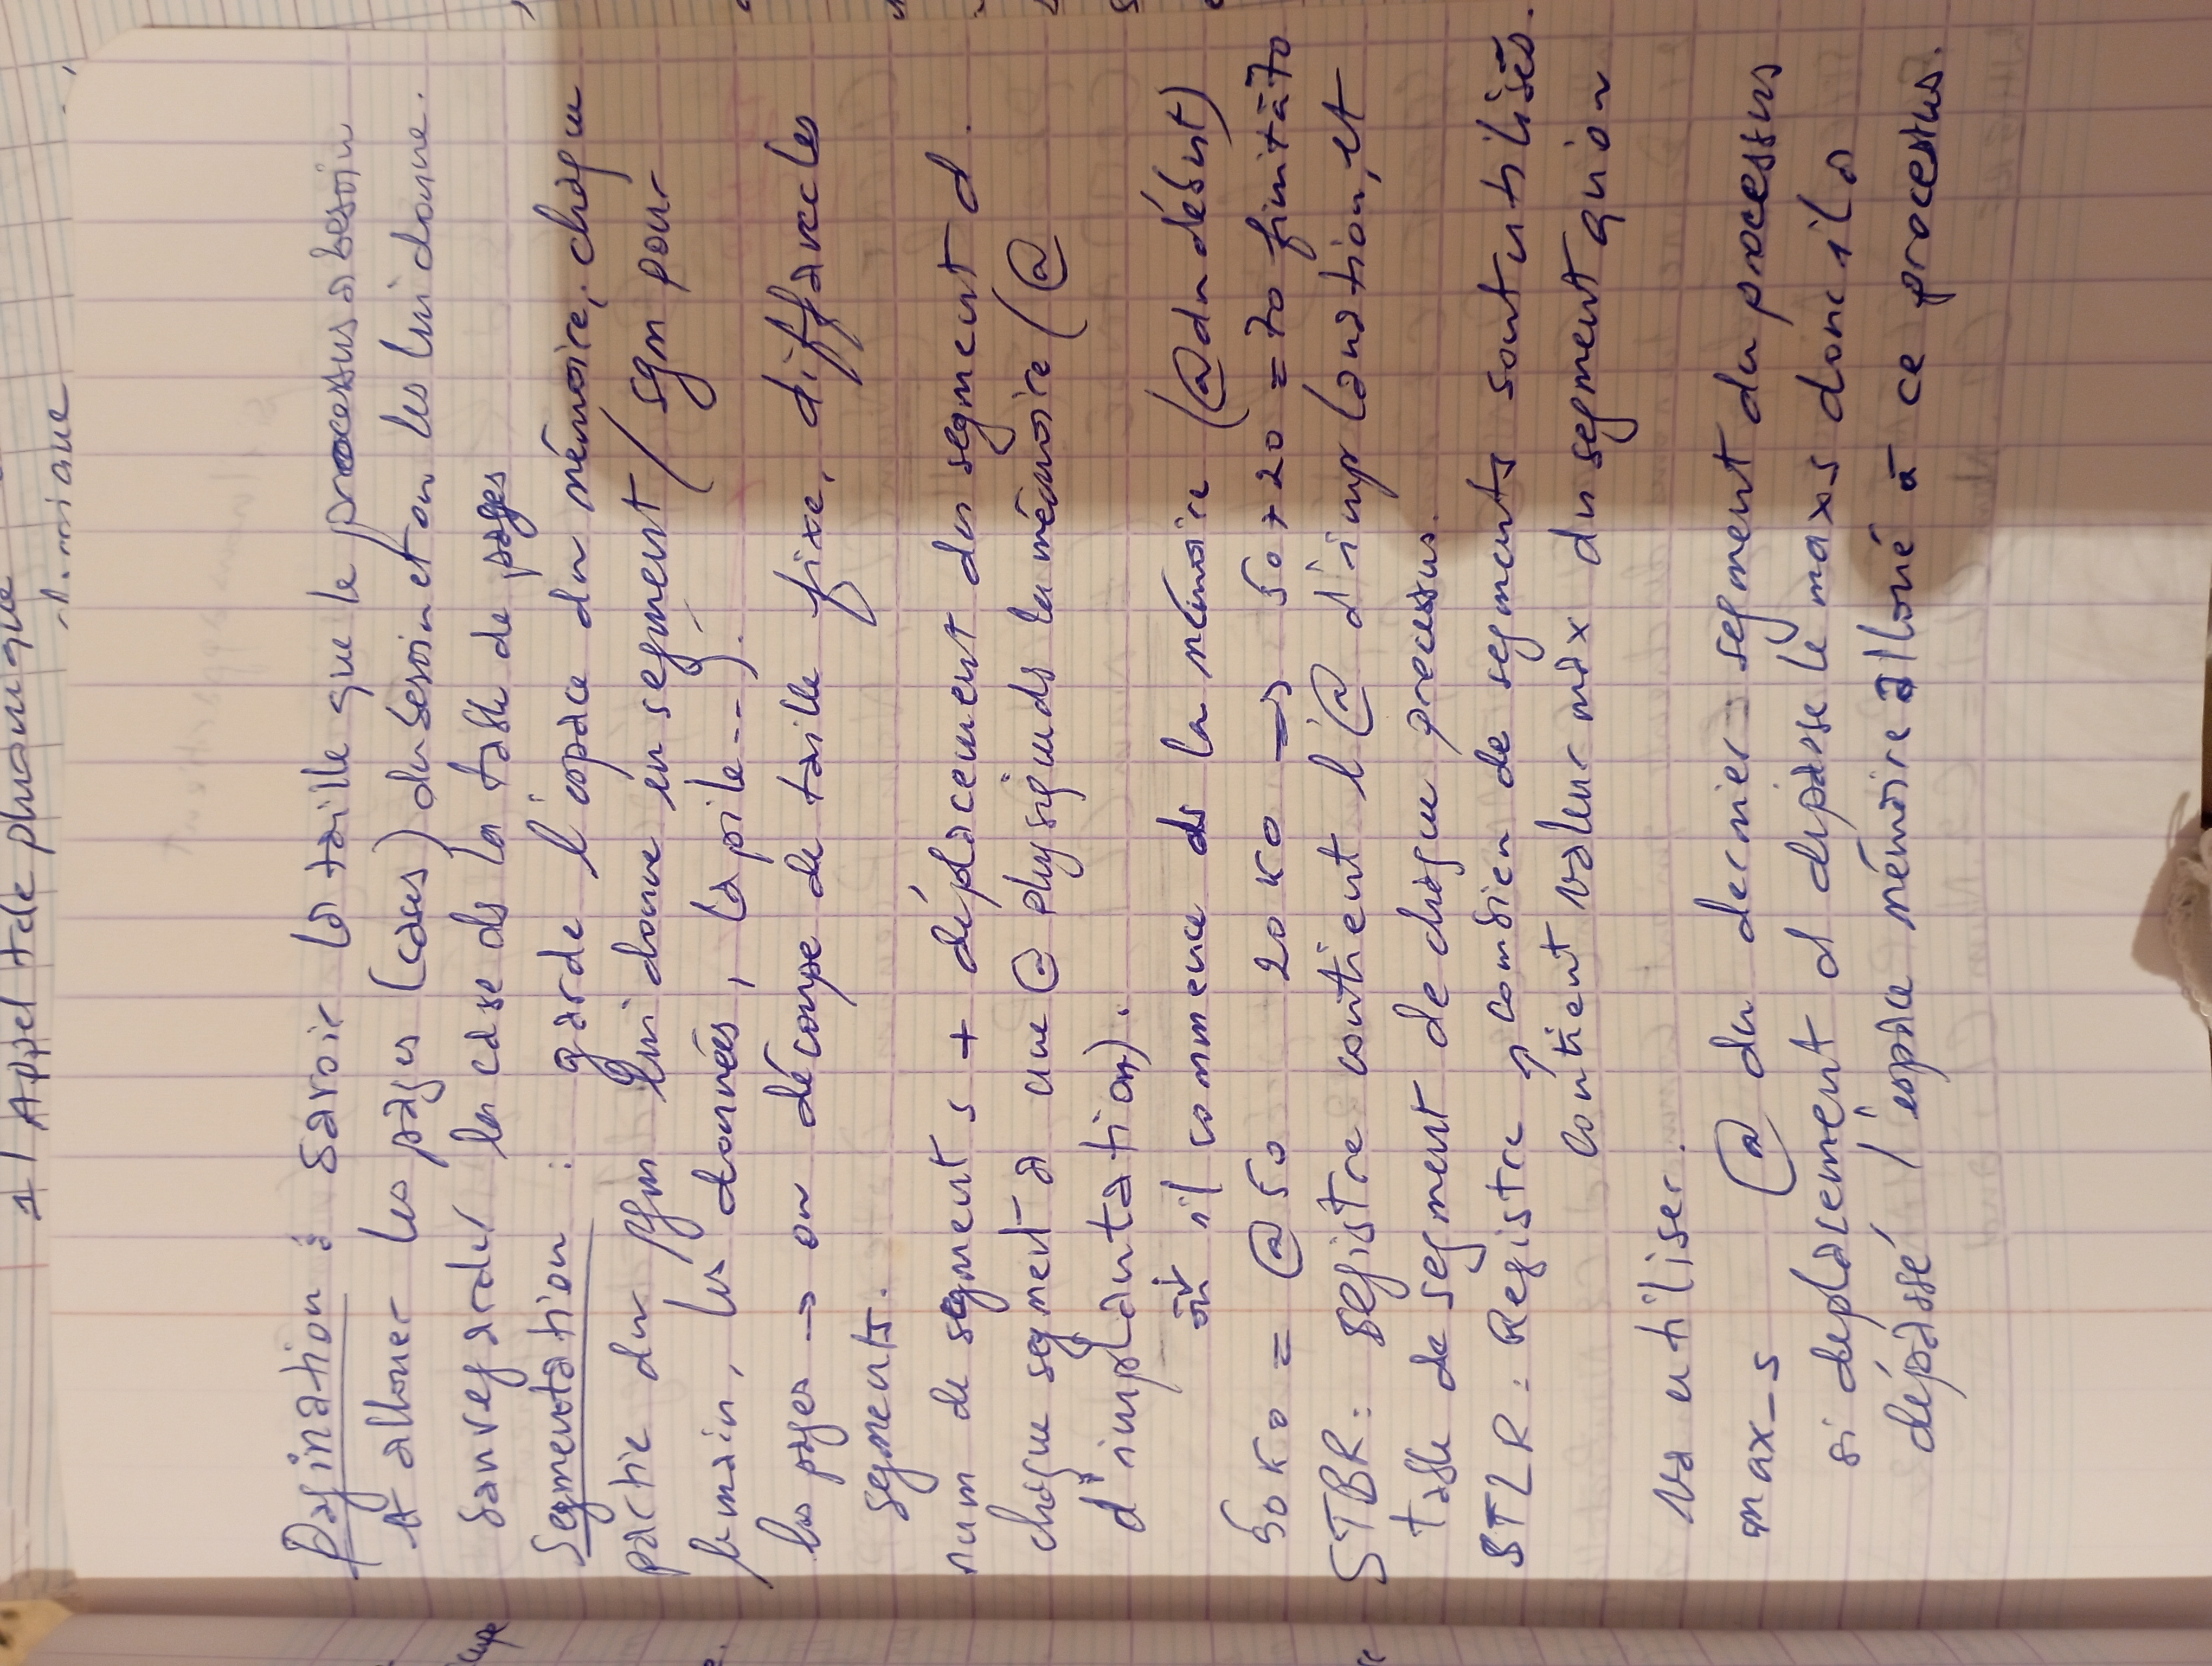 1/ Appel téléphonique
Pagination : savoir la taille que le processus a besoin
A allouer les pages (cases) du besoin et on les lui donne.
sauvegarder la case ds la table de pages
Segmentation : garde l'espace du mémoire, chaque
partie du pgm lui donne un segment (sgm pour
le main, les données, la pile--).
les pages → on découpe de taille fixe, diff avec les
segments.
num de segment s + déplacement du segment d.
chaque segment a une @ physique ds la mémoire (@
d'implantation).
où il commence ds la mémoire (@ du début)
50 ko = @ 50 20 ko => 50 + 20 = 70 finit à 70
STBR : registre contient l'@ d'implantation, et
table de segment de chaque processus.
STLR : Registre combien de segments sont utilisés.
contient valeur max du segment qu'on
va utiliser.
max_s @ du dernier segment du processus
si déplacement d dépasse le max s donc il a
dépassé l'espace mémoire alloué à ce processus.